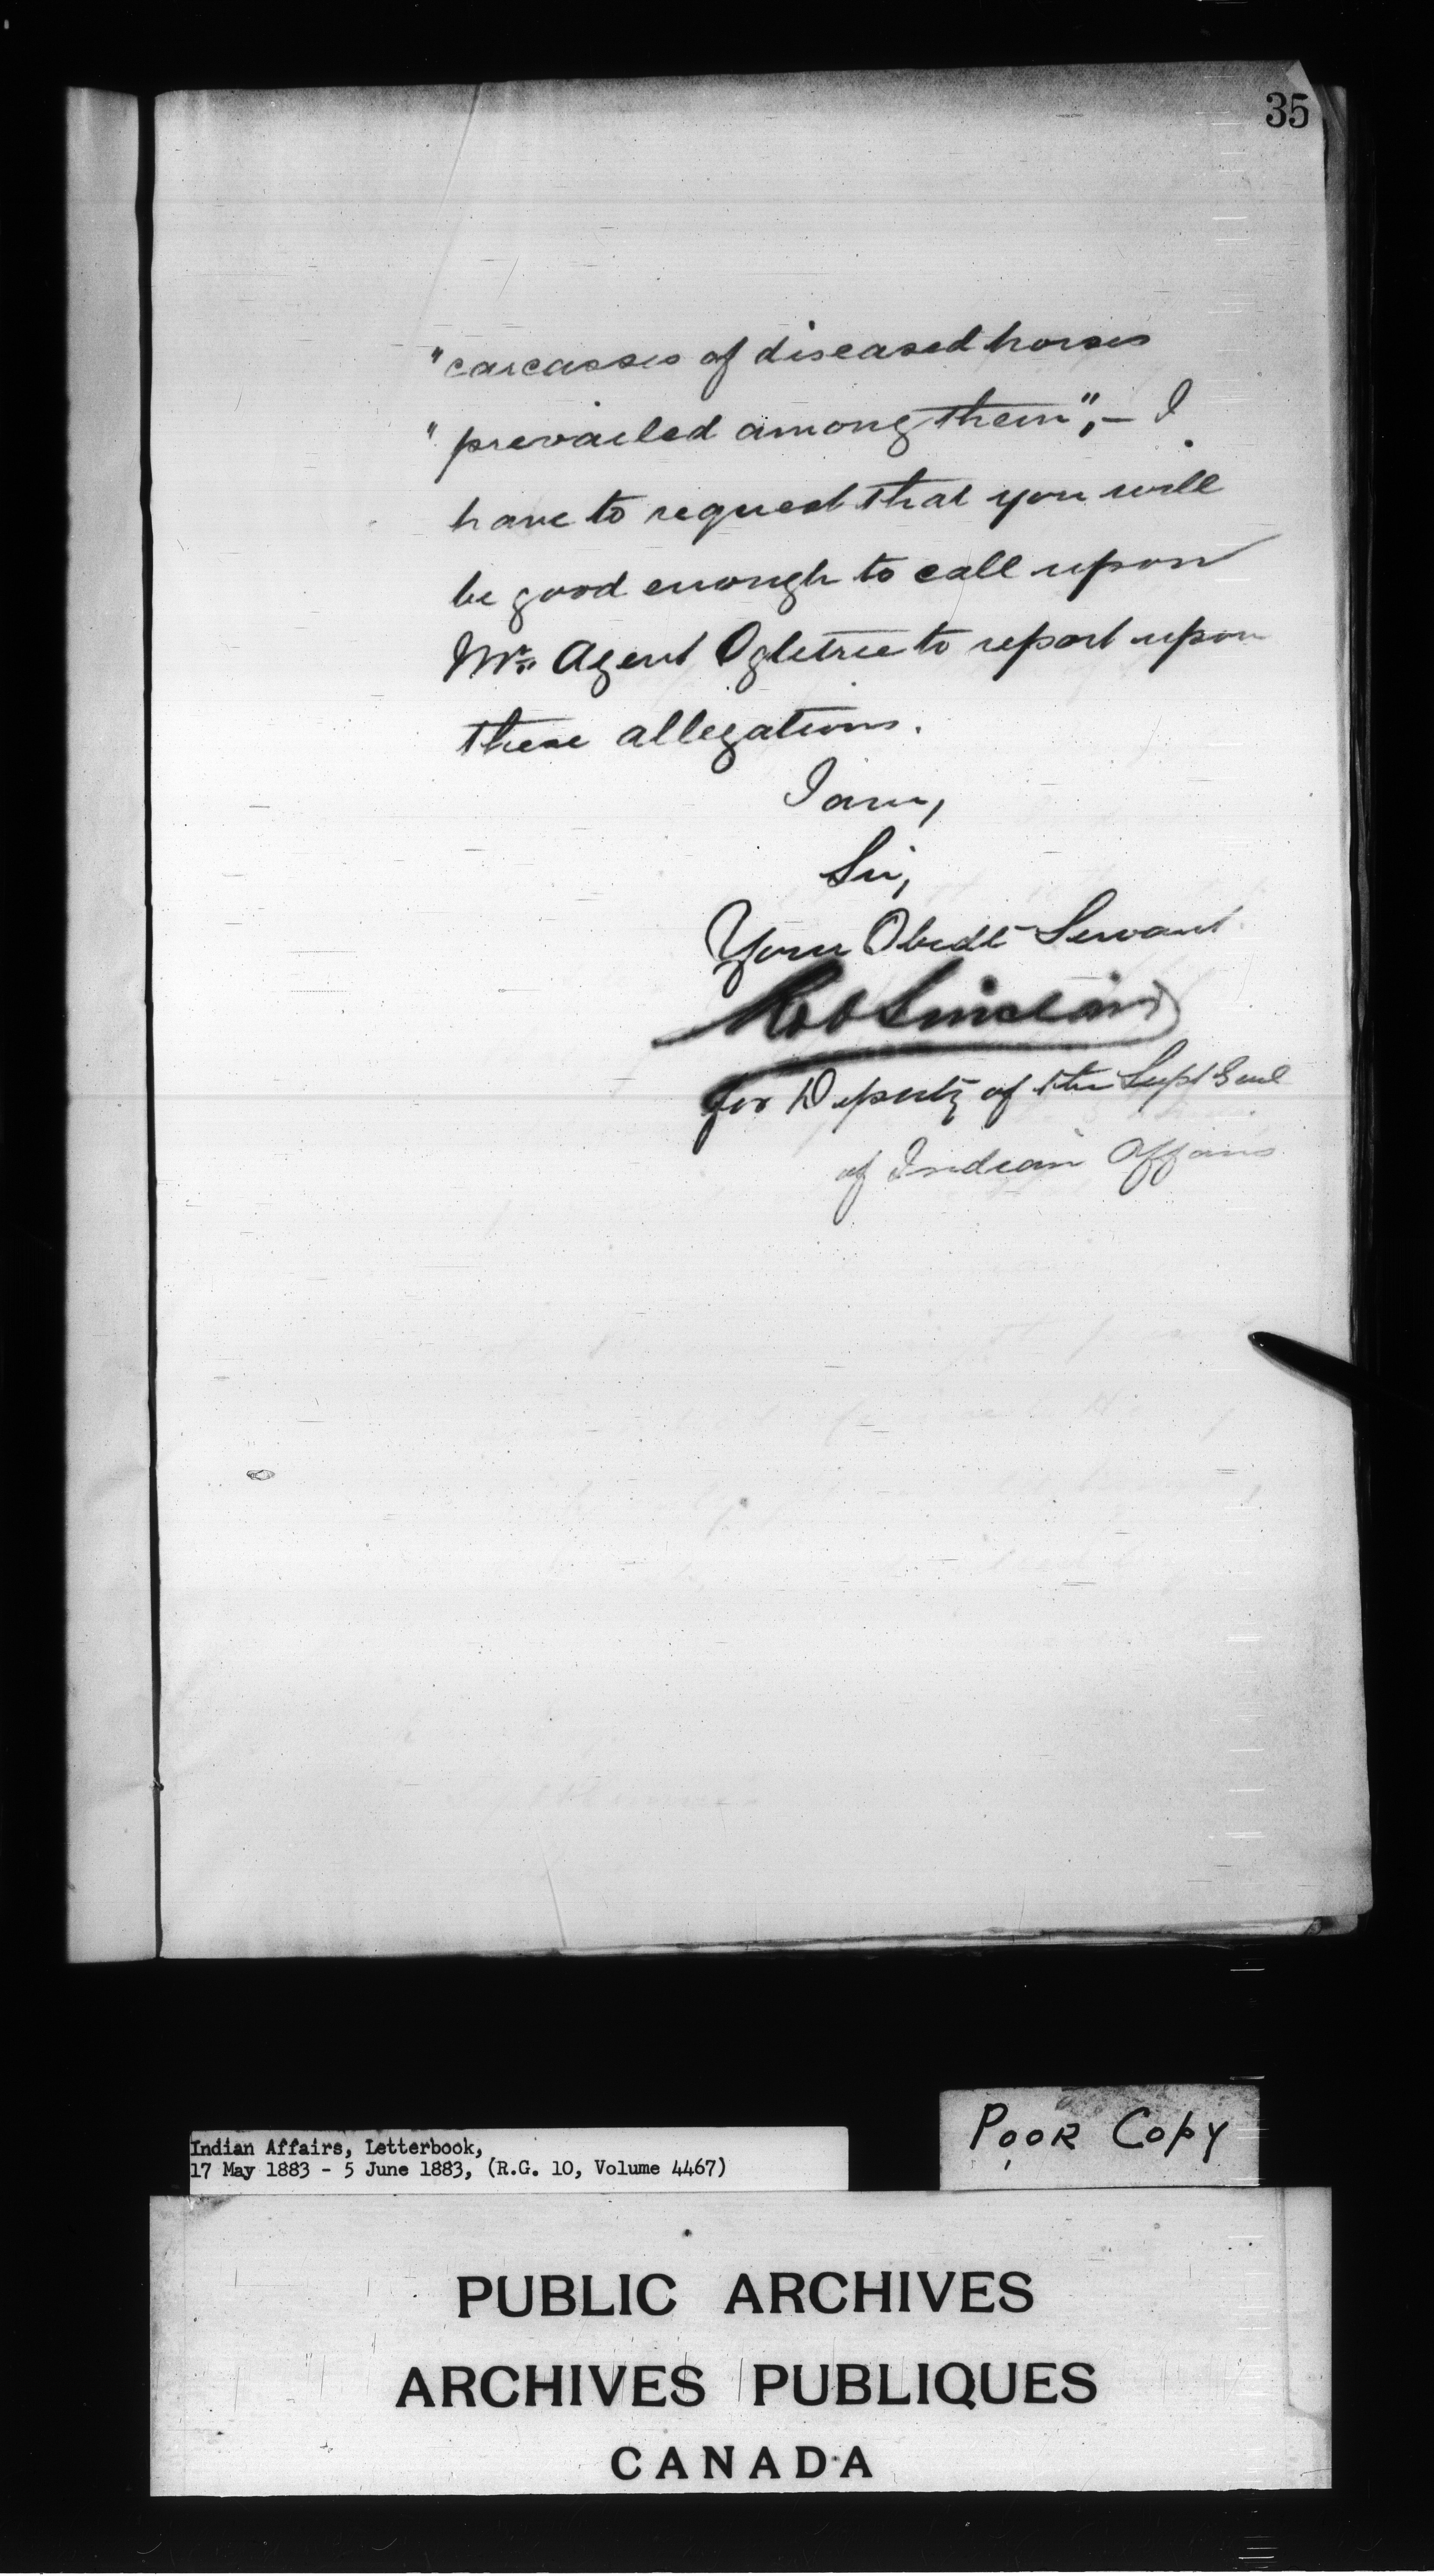 35
"carcasses of diseased horses
"prevailed among them", – I
have to request that you will
be good enough to call upon
Mr. Agent Ogletree to report upon
these allegations.
I am,
Sir,
Your Obedt Servant
Rob Sinclair
for Deputy of the Supt Genl
of Indian Affairs
Poor Copy
Indian Affairs, Letterbook,
17 May 1883 - 5 June 1883, (R.G. 10, Volume 4467)
PUBLIC ARCHIVES
ARCHIVES PUBLIQUES
CANADA